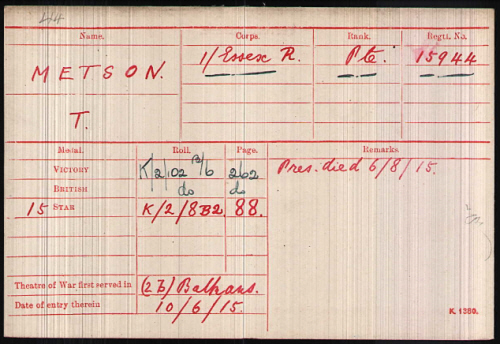 44
Name. Corps. Rank. Regtl. No.
METSON. 1/Essex R. Pte. 15944
T.
Medal. Roll. Page. Remarks.
VICTORY K/2/102 B/6 262 Pres. died 6/8/15.
BRITISH do do
15 STAR K/2/8B2 88.
Theatre of War first served in (2b) Balkans.
Date of entry therein 10/6/15.
K. 1380.